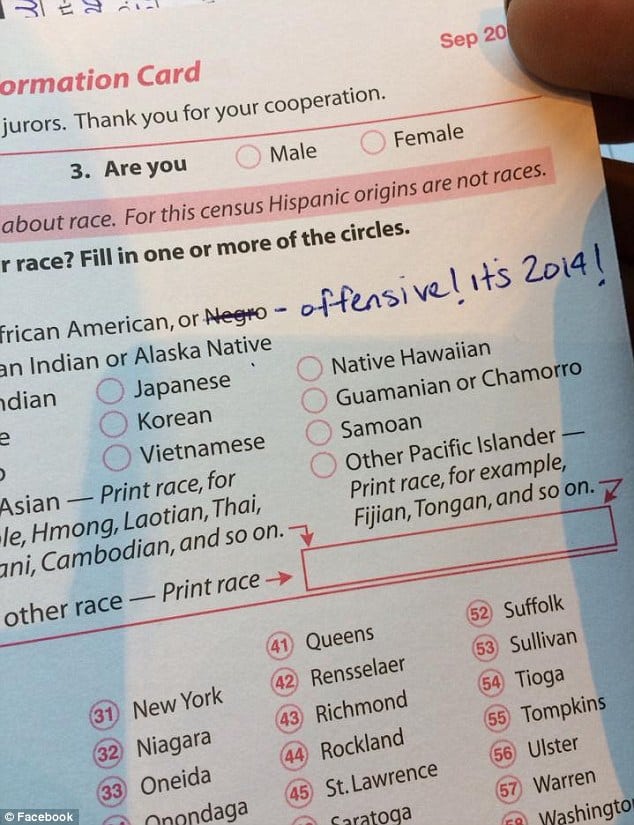 Sep 20
ormation Card
jurors. Thank you for your cooperation.
3. Are you Male Female
about race. For this census Hispanic origins are not races.
r race? Fill in one or more of the circles.
frican American, or Negro - offensive! it's 2014!
an Indian or Alaska Native
ndian Japanese Native Hawaiian
e Korean Guamanian or Chamorro
o Vietnamese Samoan
Asian — Print race, for Other Pacific Islander —
le, Hmong, Laotian, Thai, Print race, for example,
ani, Cambodian, and so on. Fijian, Tongan, and so on.
other race — Print race
31 New York 41 Queens 52 Suffolk
32 Niagara 42 Rensselaer 53 Sullivan
33 Oneida 43 Richmond 54 Tioga
Onondaga 44 Rockland 55 Tompkins
45 St. Lawrence 56 Ulster
Saratoga 57 Warren
58 Washingto
© Facebook